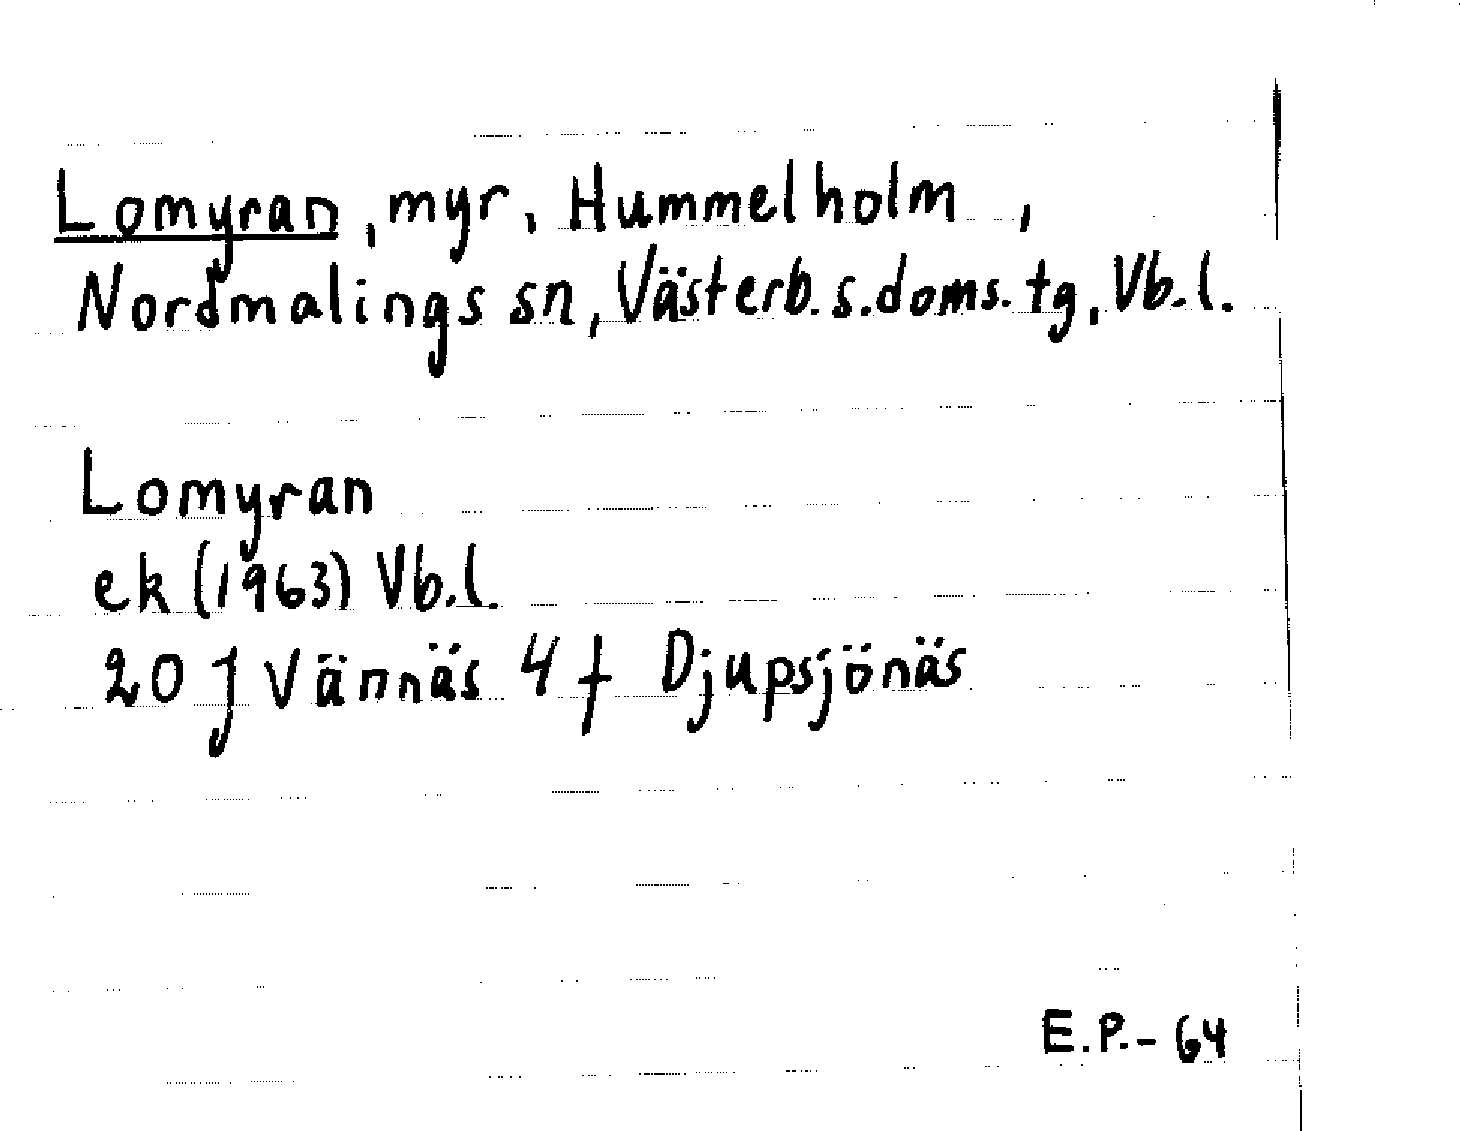 Lomyran, myr, Hummelholm,
Nordmalings sn, Västerb. s. doms. tg, Vb. l.
Lomyran
ek (1963) Vb. l.
20 J Vännäs 4 f Djupsjönäs
E.P.- 64